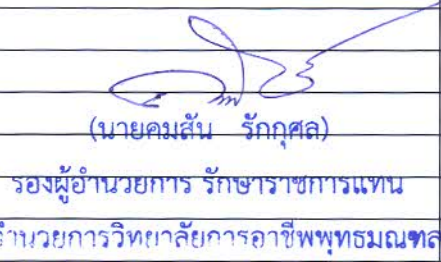 (นายคมสัน รักกุศล)
รองผู้อำนวยการ รักษาราชการแทน
อำนวยการวิทยาลัยการอาชีพพุทธมณฑล